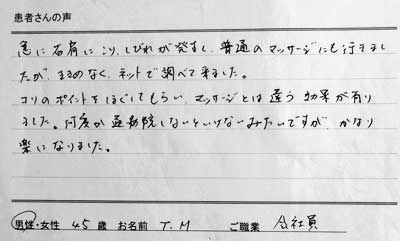 患者さんの声
急に右肩に こり、しびれが発生し、普通のマッサージにも行きまし
たが、まるめなく、ネットで調べて来ました。
コリのポイントをほぐしてもらい、マッサージとは違う効果が有り
ました。何度か通院しないといけないみたいですが、かなり
楽になりました。
男性・女性 45 歳 お名前 T.M ご職業 会社員